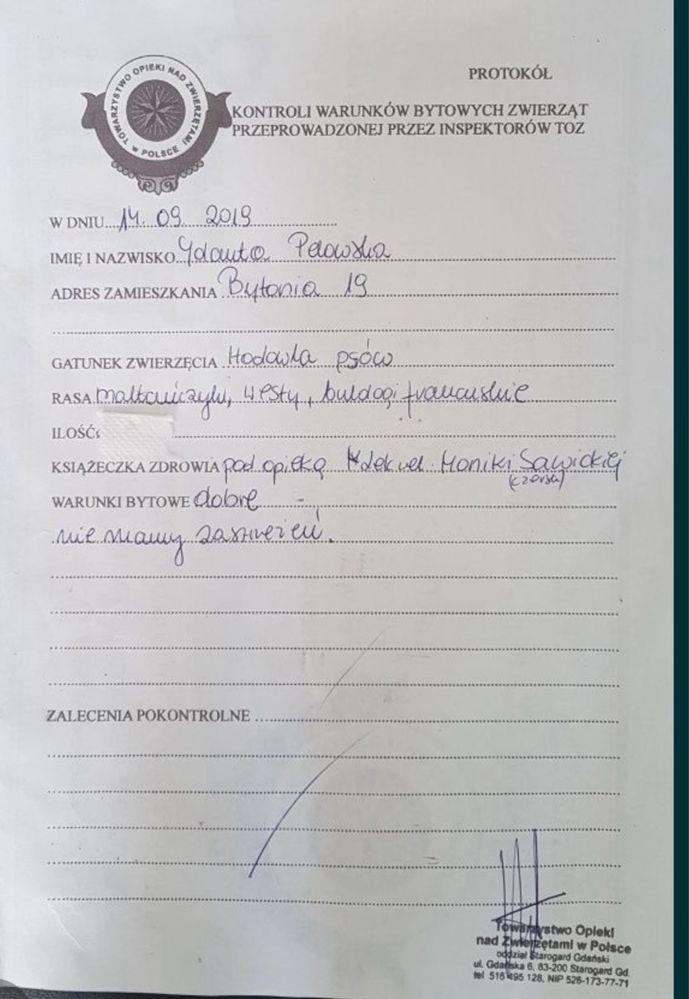 TOWARZYSTWO OPIEKI NAD ZWIERZĘTAMI
w POLSCE
PROTOKÓŁ
KONTROLI WARUNKÓW BYTOWYCH ZWIERZĄT
PRZEPROWADZONEJ PRZEZ INSPEKTORÓW TOZ
W DNIU 14. 09. 2019
IMIĘ I NAZWISKO Jolanta Pelowska
ADRES ZAMIESZKANIA Bytonia 19
GATUNEK ZWIERZĘCIA Hodowla psów
RASA maltańczyki, westy, buldogi francuskie
ILOŚĆ:
KSIĄŻECZKA ZDROWIA pod opieką lek wet. Moniki Sawickiej
(Czersk)
WARUNKI BYTOWE dobre
nie mamy zastrzeżeń.
ZALECENIA POKONTROLNE
Towarzystwo Opieki
nad Zwierzętami w Polsce
oddział Starogard Gdański
ul. Gdańska 6, 83-200 Starogard Gd.
tel 516 495 128, NIP 526-173-77-71